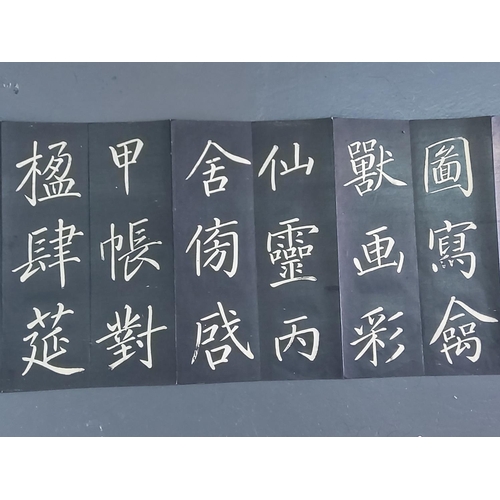 圖寫禽
獸画彩
仙靈丙
舍傍啓
甲帳對
楹肆筵